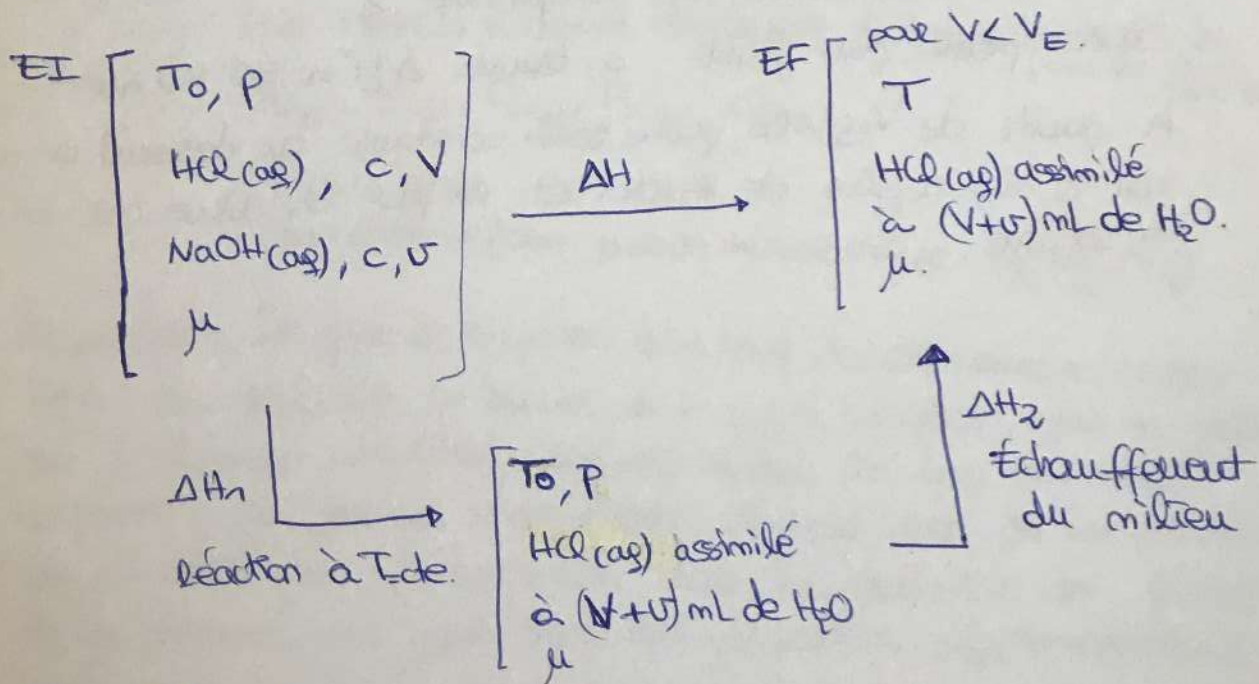 EI
T₀, P
HCl(aq), c, V
NaOH(aq), c, v
μ
ΔH
EF
par V < V_E.
T
HCl(aq) assimilé
à (V+v) mL de H₂O.
μ.
ΔH₁
Réaction à T=cte.
T₀, P
HCl(aq) assimilé
à (V+v) mL de H₂O
μ
ΔH₂
Échauffement
du milieu